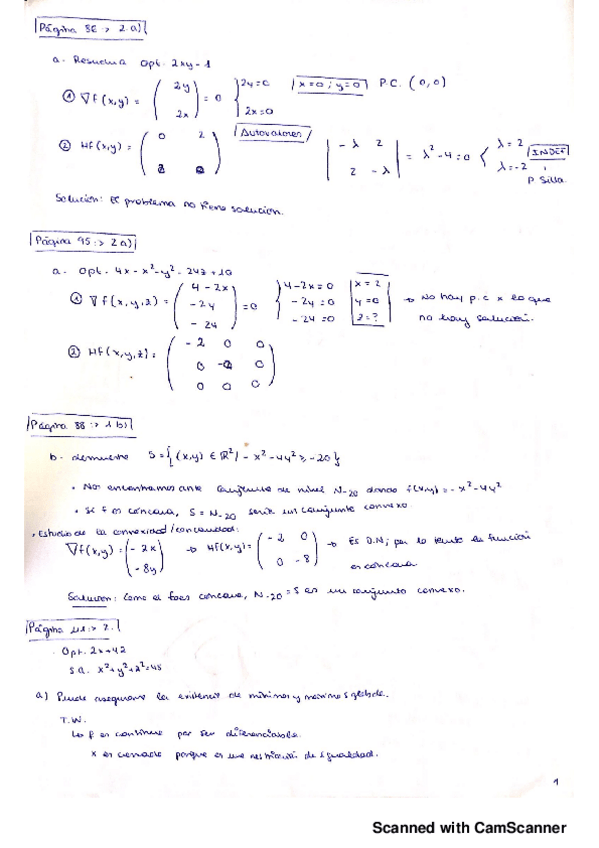 Página 86 :> 2.a)
a. Resuelva opt. 2xy-1
① ∇f(x,y) = ( 2y 2x ) = 0 { 2y=0 2x=0 x=0 ; y=0 P.C. (0,0)
② Hf(x,y) = ( 0 2 2 0 ) Autovalores | -λ 2 2 -λ | = λ²-4=0 < λ=2 λ=-2 INDEF
P Silla.
Solución: El problema no tiene solución.
Página 95 :> 2a)
a. Opt. 4x-x²-y²-
① ∇f(x,y,z) = ( 4-2x -2y ) = 0 { 4-2x=0 x=2 y=0 z=? → No hay p.c x lo que
no hay solución.
② Hf(x,y,z) = ( -2 0 0 0 -2 0 0 0 0 )
Página 88 :> 1b)
b. demuestre S={(x,y) ∈ ℝ² / -x²-4y² ≥ -20}
• Nos encontramos ante conjunto de nivel N-20 donde f(x,y)=-x²-4y²
• Si f es cóncava, S = N-20 sería un conjunto convexo.
• Estudio de la convexidad/concavidad:
∇f(x,y) = ( -2x -8y ) → Hf(x,y) = ( -2 0 0 -8 ) → Es D.N; por lo tanto la función
es cóncava
Solución: Como la f es cóncava, N-20 = S es un conjunto convexo.
Página :> 2.
Opt. 2x+
s.a. x²+y²+z²=
a) Puede asegurarse la existencia de mínimos y máximos globales.
T.W.
f es continua por ser diferenciable.
x es cerrado porque es una restricción de igualdad.
1
Scanned with CamScanner